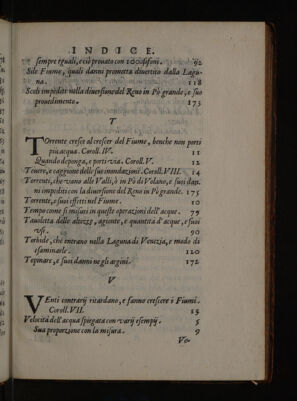 INDICE.
sempre eguali, e ciò prouato con 1000. sifoni. 92
Sile Fiume, quali danni prometta diuertito dalla Lagu-
na. 118
Scoli impediti nella diuersione del Reno in Pò grande, e suo
prouedimento. 173
T
TOrrente cresce al crescer del Fiume, benche non porti
più acqua. Coroll. IV. 11
Quando deponga, e porti via. Coroll. V. 12
Teuere, e caggione delle sue inondazioni. Coroll. VIII. 14
Torrenti, che vano alle Valli, ò in Pò di Volano, e suoi dan-
ni impediti con la diuersione del Reno in Pò grande. 175
Torrente, e suoi effetti nel Fiume. 10
Tempo come si misuri in queste operazioni dell'acque. 79
Tauoletta delle altezze, agiunte, e quantità d'acque, e suoi
vsi. 90
Torbide, che entrano nella Laguna di Venezia, e modo di
esaminarle. 120
Topinare, e suoi danni negli argini. 172
V
VEnti contrarij ritardano, e fanno crescere i Fiumi.
Coroll. VII. 13
Velocità dell'acqua spiegata con varij esempij. 5
Sua proporzione con la misura. 9
Ve-